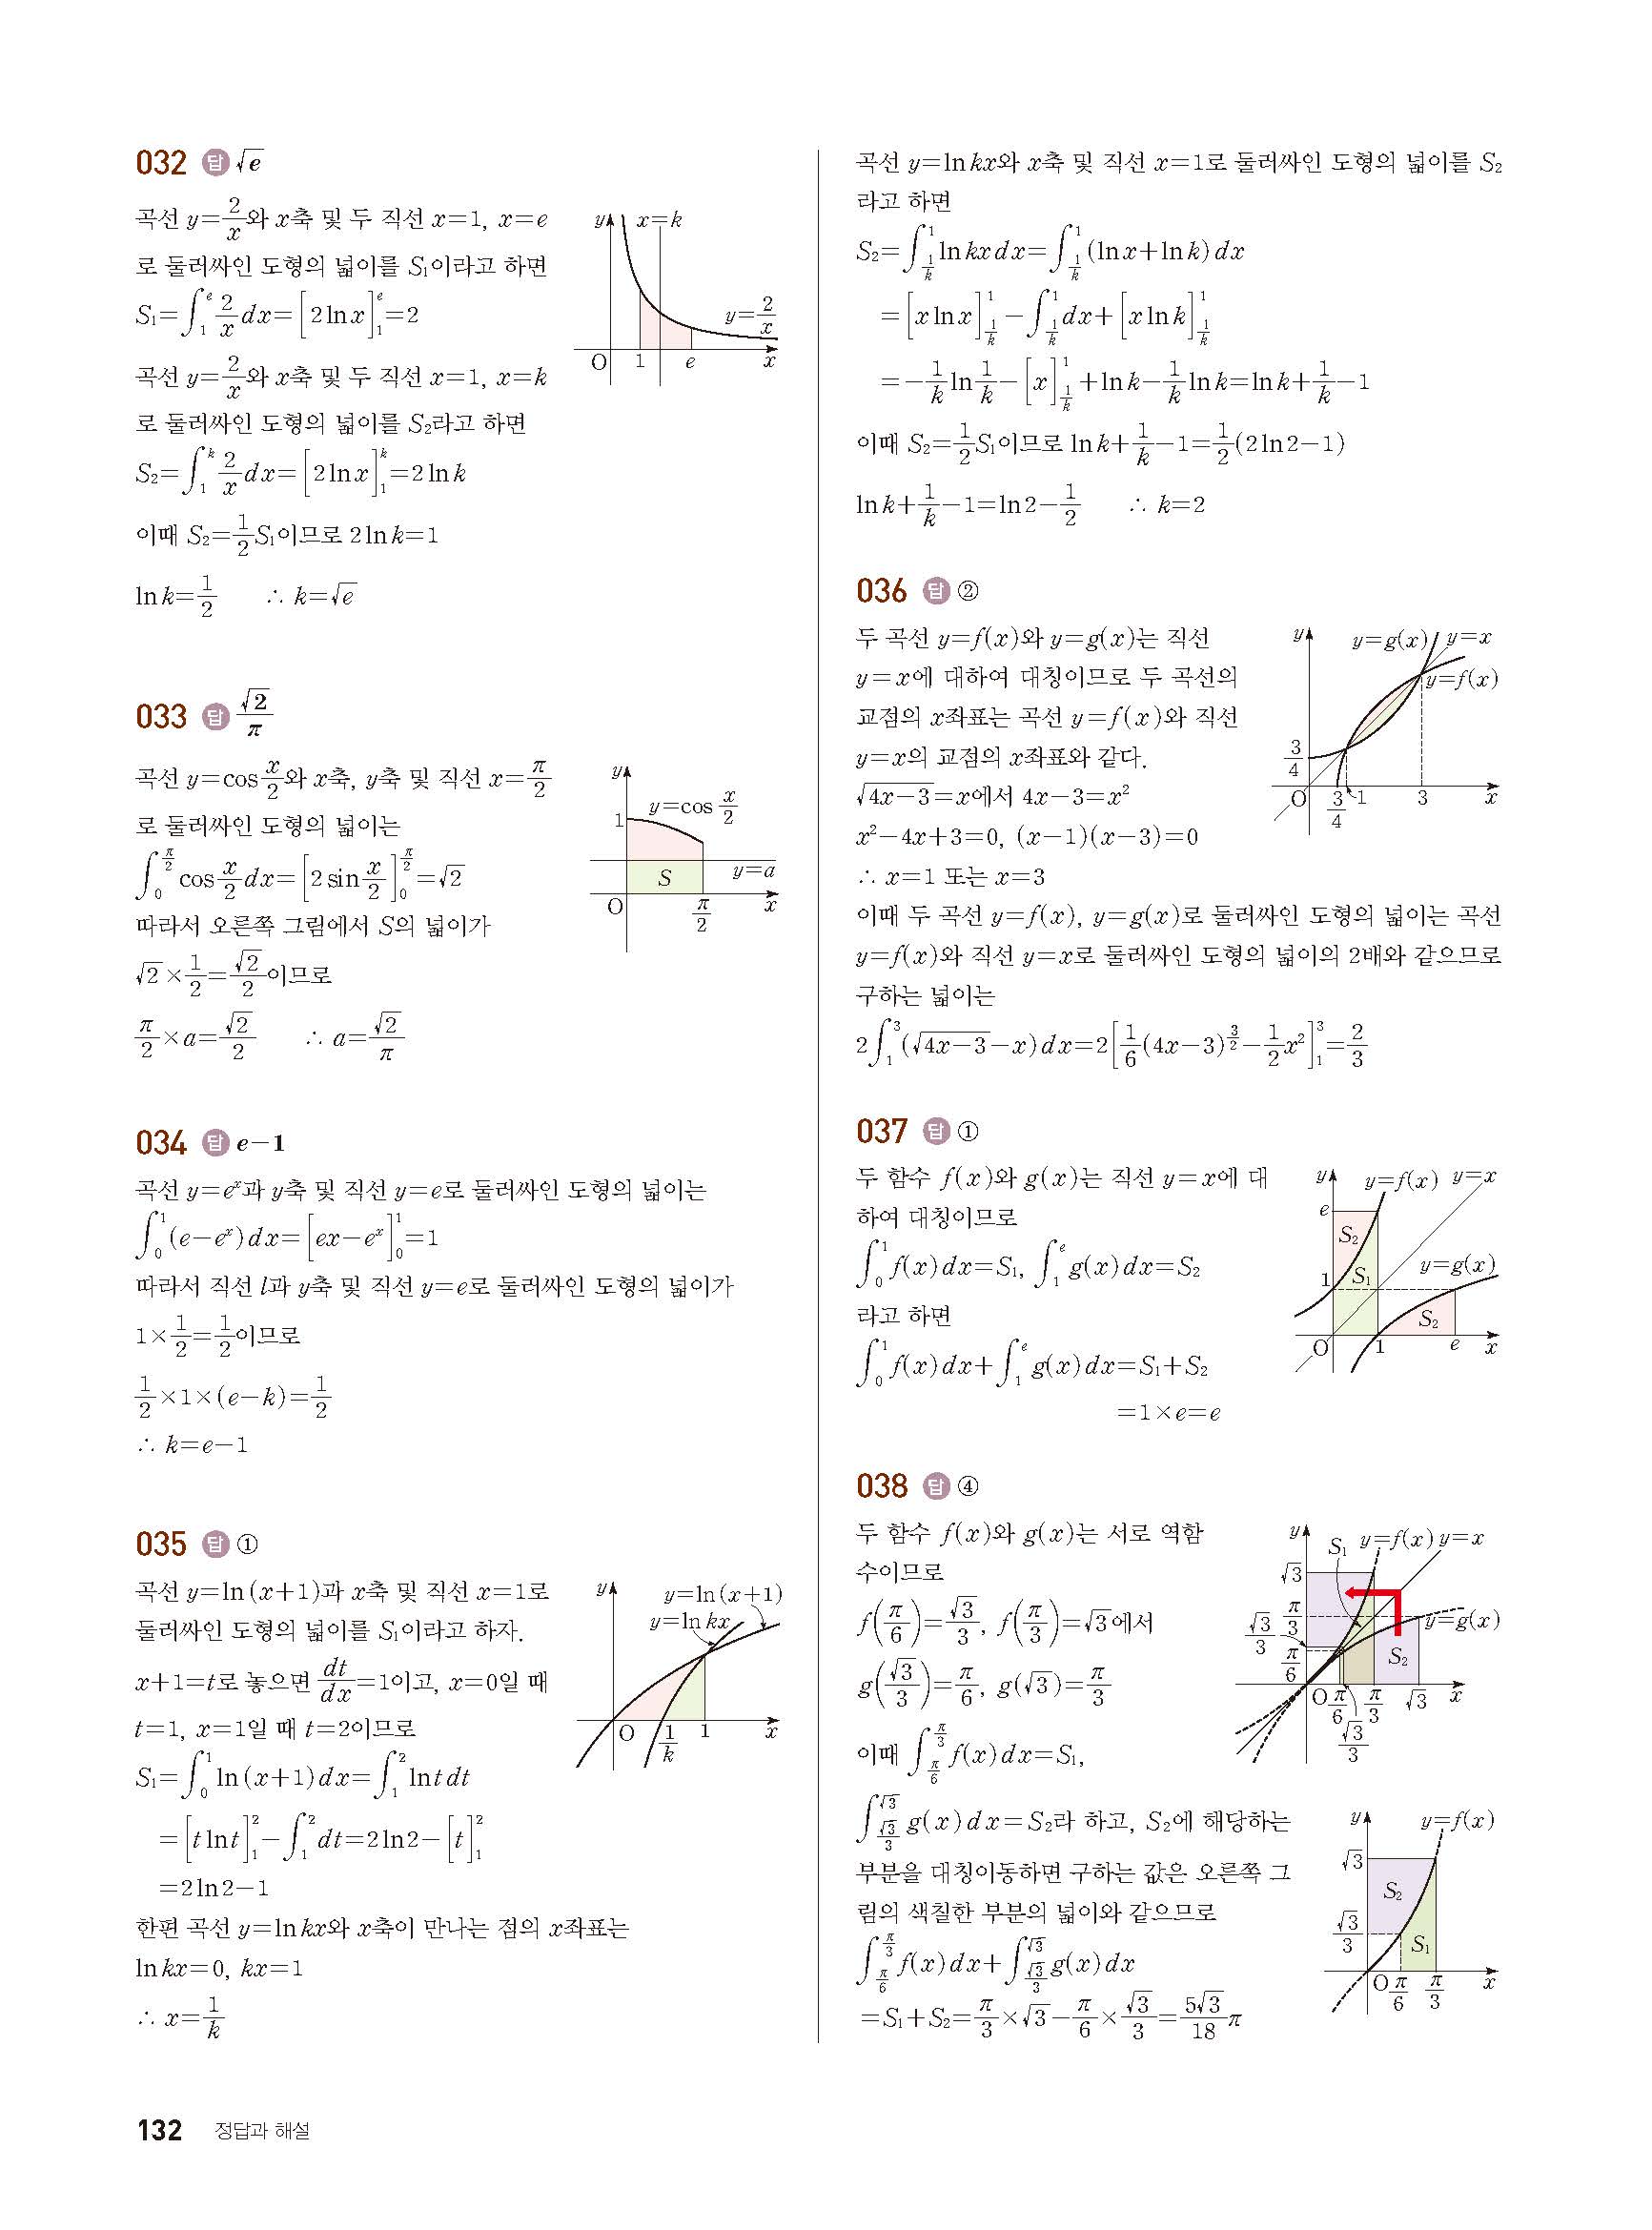 032 답 √e
곡선 y=2/x와 x축 및 두 직선 x=1, x=e
로 둘러싸인 도형의 넓이를 S₁이라고 하면
S₁=∫₁^e 2/x dx=[2lnx]₁^e=2
곡선 y=2/x와 x축 및 두 직선 x=1, x=k
로 둘러싸인 도형의 넓이를 S₂라고 하면
S₂=∫₁^k 2/x dx=[2lnx]₁^k=2lnk
이때 S₂=1/2 S₁이므로 2lnk=1
lnk=1/2 ∴ k=√e
y x=k
y=2/x
O 1 e x
033 답 √2/π
곡선 y=cos x/2와 x축, y축 및 직선 x=π/2
로 둘러싸인 도형의 넓이는
∫₀^(π/2) cos x/2 dx=[2sin x/2]₀^(π/2)=√2
따라서 오른쪽 그림에서 S의 넓이가
√2×1/2=√2/2이므로
π/2×a=√2/2 ∴ a=√2/π
y
y=cos x/2
1
S y=a
O π/2 x
034 답 e-1
곡선 y=e^x과 y축 및 직선 y=e로 둘러싸인 도형의 넓이는
∫₀^1 (e-e^x)dx=[ex-e^x]₀^1=1
따라서 직선 l과 y축 및 직선 y=e로 둘러싸인 도형의 넓이가
1×1/2=1/2이므로
1/2×1×(e-k)=1/2
∴ k=e-1
035 답 ①
곡선 y=ln(x+1)과 x축 및 직선 x=1로
둘러싸인 도형의 넓이를 S₁이라고 하자.
x+1=t로 놓으면 dt/dx=1이고, x=0일 때
t=1, x=1일 때 t=2이므로
S₁=∫₀^1 ln(x+1)dx=∫₁^2 lntdt
=[tlnt]₁^2-∫₁^2 dt=2ln2-[t]₁^2
=2ln2-1
한편 곡선 y=lnkx와 x축이 만나는 점의 x좌표는
lnkx=0, kx=1
∴ x=1/k
y y=ln(x+1)
y=lnkx
O 1/k 1 x
곡선 y=lnkx와 x축 및 직선 x=1로 둘러싸인 도형의 넓이를 S₂
라고 하면
S₂=∫_(1/k)^1 lnkxdx=∫_(1/k)^1 (lnx+lnk)dx
=[xlnx]_(1/k)^1-∫_(1/k)^1 dx+[xlnk]_(1/k)^1
=-1/k ln 1/k-[x]_(1/k)^1+lnk-1/k lnk=lnk+1/k-1
이때 S₂=1/2 S₁이므로 lnk+1/k-1=1/2(2ln2-1)
lnk+1/k-1=ln2-1/2 ∴ k=2
036 답 ②
두 곡선 y=f(x)와 y=g(x)는 직선
y=x에 대하여 대칭이므로 두 곡선의
교점의 x좌표는 곡선 y=f(x)와 직선
y=x의 교점의 x좌표와 같다.
√(4x-3)=x에서 4x-3=x²
x²-4x+3=0, (x-1)(x-3)=0
∴ x=1 또는 x=3
이때 두 곡선 y=f(x), y=g(x)로 둘러싸인 도형의 넓이는 곡선
y=f(x)와 직선 y=x로 둘러싸인 도형의 넓이의 2배와 같으므로
구하는 넓이는
2∫₁^3 (√(4x-3)-x)dx=2[1/6(4x-3)^(3/2)-1/2 x²]₁^3=2/3
y y=g(x) y=x
y=f(x)
3/4
O 3/4 1 3 x
037 답 ①
두 함수 f(x)와 g(x)는 직선 y=x에 대
하여 대칭이므로
∫₀^1 f(x)dx=S₁, ∫₁^e g(x)dx=S₂
라고 하면
∫₀^1 f(x)dx+∫₁^e g(x)dx=S₁+S₂
=1×e=e
y y=f(x) y=x
e
S₂
1 S₁ y=g(x)
S₂
O 1 e x
038 답 ④
두 함수 f(x)와 g(x)는 서로 역함
수이므로
f(π/6)=√3/3, f(π/3)=√3에서
g(√3/3)=π/6, g(√3)=π/3
이때 ∫_(π/6)^(π/3) f(x)dx=S₁,
∫_(√3/3)^(√3) g(x)dx=S₂라 하고, S₂에 해당하는
부분을 대칭이동하면 구하는 값은 오른쪽 그
림의 색칠한 부분의 넓이와 같으므로
∫_(π/6)^(π/3) f(x)dx+∫_(√3/3)^(√3) g(x)dx
=S₁+S₂=π/3×√3-π/6×√3/3=5√3/18 π
y S₁ y=f(x) y=x
√3
π/3
√3/3 y=g(x)
π/6 S₂
O π/6 π/3 √3 x
√3/3
y y=f(x)
√3
S₂
√3/3 S₁
O π/6 π/3 x
132 정답과 해설